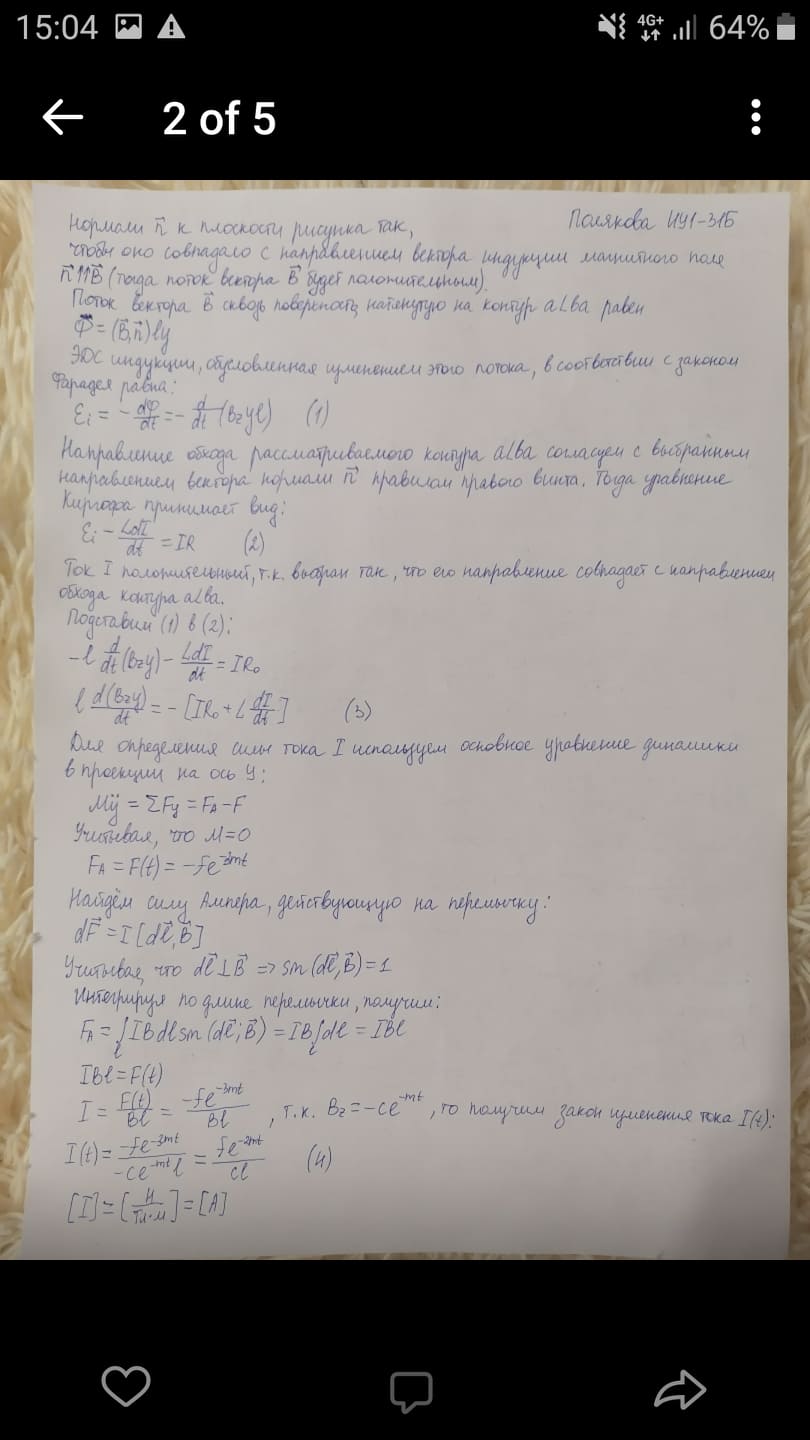 15:04
4G+
64%
2 of 5
Полякова ИУ1-31Б
Нормали n⃗ к плоскости рисунка так,
чтобы оно совпадало с направлением вектора индукции магнитного поле
n⃗↑↑B⃗ (тогда поток вектора B⃗ будет положительным).
Поток вектора B⃗ сквозь поверхность, натянутую на контур aLba равен
Ф = (B⃗,n⃗)ly
ЭДС индукции, обусловленная изменением этого потока, в соответствии с законом
Фарадея равна:
Ɛi = -dФ/dt = -d/dt (Bzyl) (1)
Направление обхода рассматриваемого контура aLba согласуем с выбранным
направлением вектора нормали n⃗ правилом правого винта. Тогда уравнение
Киргофа принимает вид:
Ɛi - LdI/dt = IR (2)
Ток I положительный, т.к. выбран так, что его направление совпадает с направлением
обхода контура aLba.
Подставим (1) в (2):
-l d/dt (Bzy) - LdI/dt = IR₀
l d(Bzy)/dt = -[IR₀ + L dI/dt] (3)
Для определения силы тока I используем основное уравнение динамики
в проекции на ось y:
Mÿ = ΣFy = FA - F
Учитывая, что M=0
FA = F(t) = -fe^-3mt
Найдём силу Ампера, действующую на перемычку:
dF⃗ = I[dl⃗,B⃗]
Учитывая, что dl⃗⊥B⃗ => sin(dl⃗,B⃗)=1
Интегрируя по длине перемычки, получим:
FA = ∫l IBdlsin(dl⃗;B⃗) = IB∫l dl = IBl
IBl = F(t)
I = F(t)/Bl = -fe^-3mt/Bl , т.к. Bz = -ce^-mt, то получим закон изменения тока I(t):
I(t) = -fe^-3mt/-ce^-mt l = fe^-2mt/cl (4)
[I] = [Н/Тл·м] = [A]